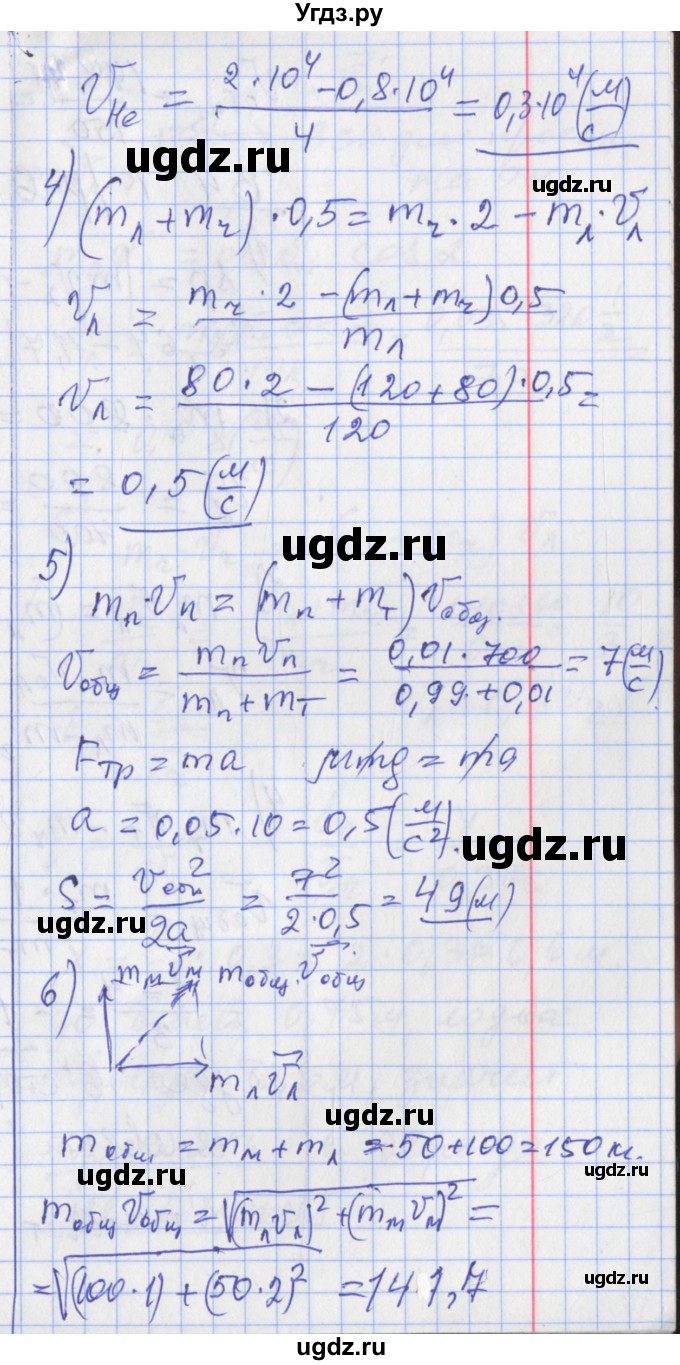 Угдз.ру
V_He = (2·10⁴ − 0,8·10⁴)/4 = 0,3·10⁴ (м/с)
ugdz.ru
ugdz.ru
4) (m_л + m_ч)·0,5 = m_ч·2 − m_л·V_л
V_л = (m_ч·2 − (m_л + m_ч)0,5)/m_л
V_л = (80·2 − (120+80)·0,5)/120 =
= 0,5 (м/с)
ugdz.ru
5) m_п·V_п = (m_п + m_т) V_общ.
V_общ = (m_п V_п)/(m_п + m_т) = (0,01·700)/(0,99+0,01) = 7 (м/с)
F_тр = ma μmg = ma
a = 0,05·10 = 0,5 (м/с²).
ugdz.ru
S = V_общ²/2a = 7²/(2·0,5) = 49 (м)
ugdz.ru
6) m_м V⃗_м m_общ. V⃗_общ
m_л V⃗_л
ugdz.ru
m_общ = m_м + m_л = 50+100 = 150 кг.
ugdz.ru
ugdz.ru
m_общ V_общ = √((m_л V_л)² + (m_м V_м)²) =
= √((100·1) + (50·2)²) = 141,7
ugdz.ru
ugdz.ru
ugdz.ru